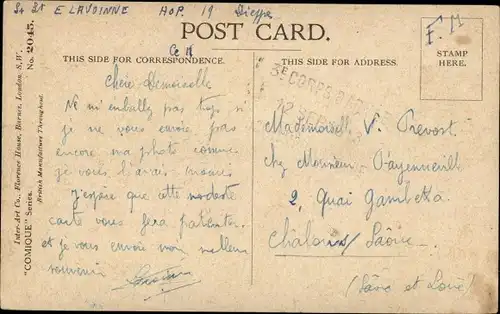 E LAVOINNE HOP. 19 Dieppe
POST CARD.
F. M
THIS SIDE FOR CORRESPONDENCE.
THIS SIDE FOR ADDRESS.
STAMP
HERE.
Inter-Art Co., Florence House, Barnes, London, S.W.
"COMIQUE" Series. British Manufacture Throughout. No. 2045.
3E CORPS D'ARMÉE
Chère Demoiselle
Ne m'en pas trop si
je ne vous envoie pas
encore ma photo comme
je vous l'avais promis
J'espère que cette modeste
carte vous fera patienter
et je vous envoie mon meilleur
souvenir
Mademoiselle V. Prevost
chez Monsieur
2, Quai Gambetta
Chalons / Saône
(Saône et Loire)